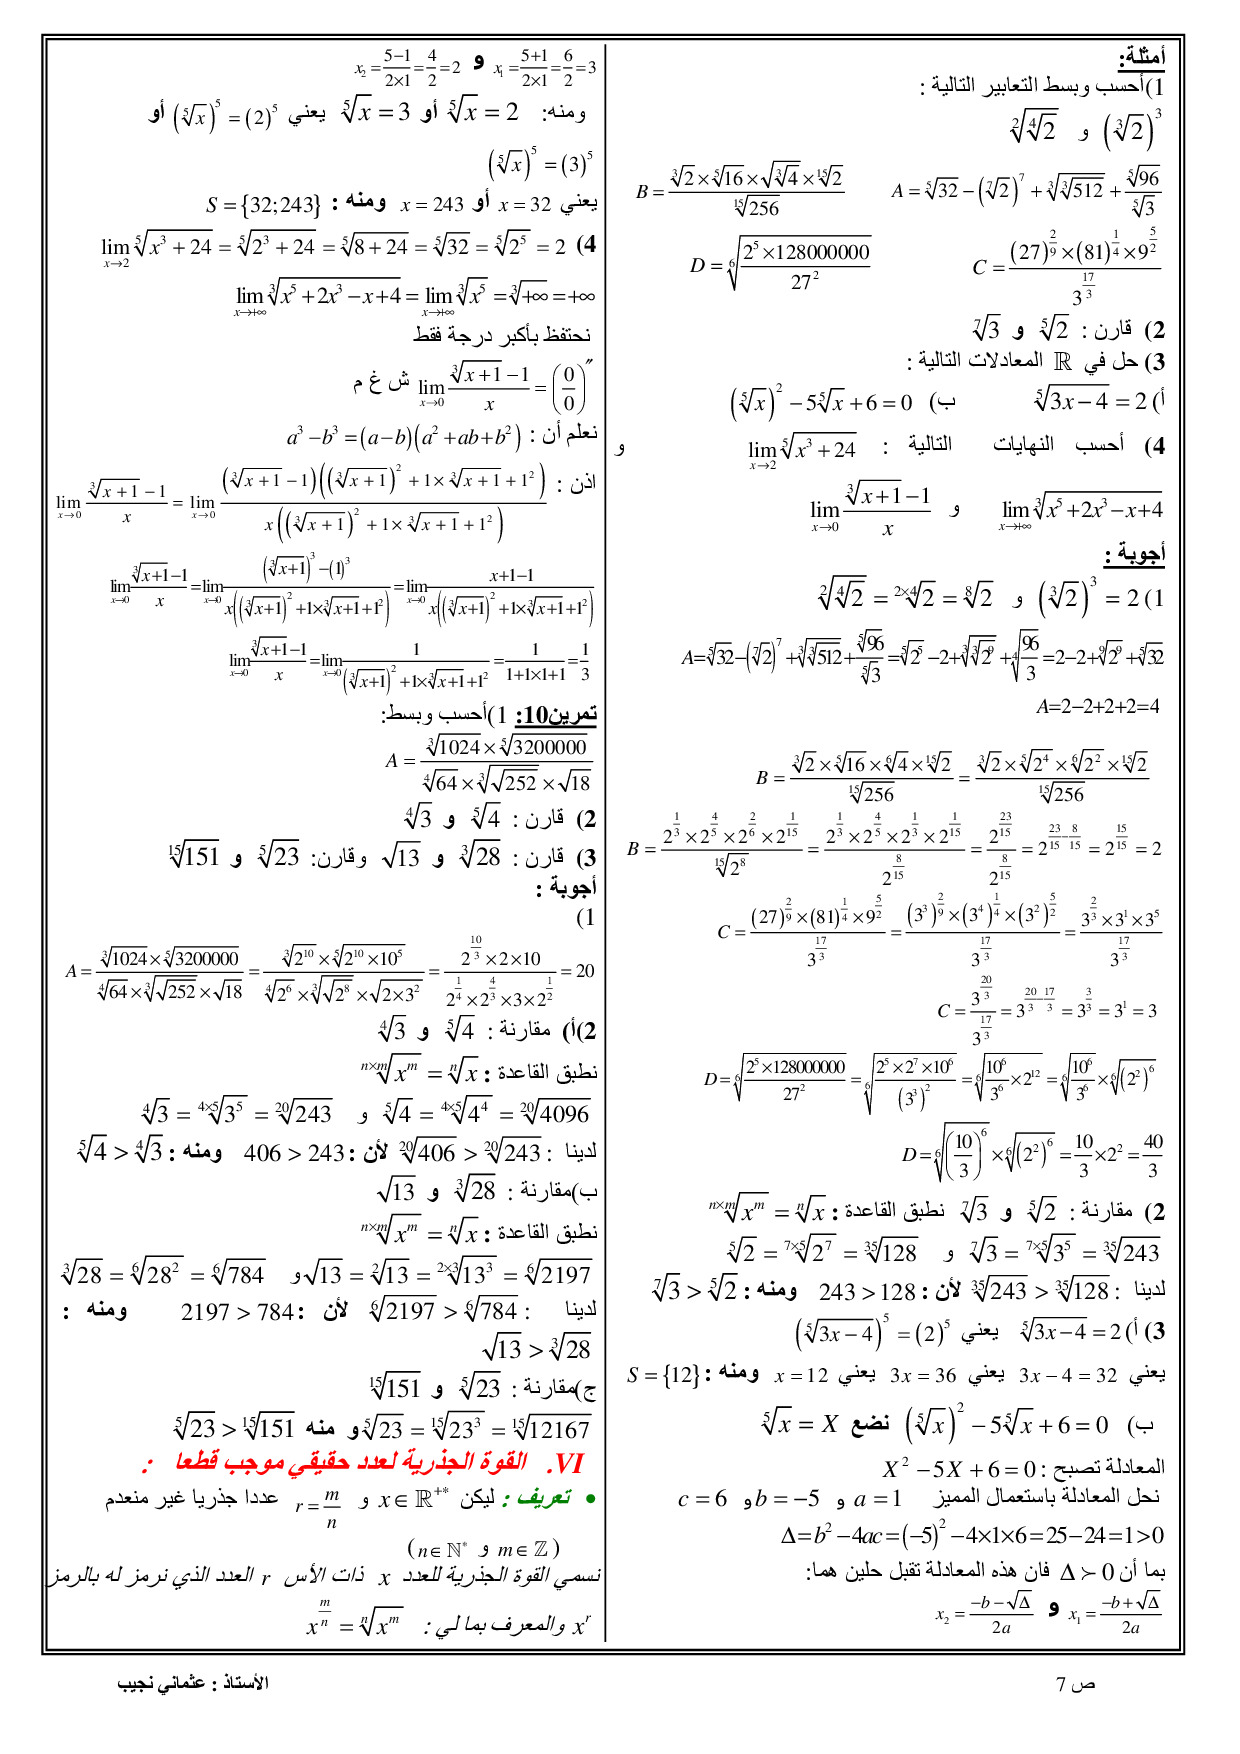 أمثلة:
1)أحسب وبسط التعابير التالية :
$\left(\sqrt[3]{2}\right)^3$ و $\sqrt[2]{\sqrt[4]{2}}$
$A=\sqrt[5]{32}-\left(\sqrt[7]{2}\right)^7+\sqrt[3]{\sqrt[3]{512}}+\frac{\sqrt[5]{96}}{\sqrt[5]{3}}$ $B=\frac{\sqrt[3]{2}\times\sqrt[5]{16}\times\sqrt{\sqrt[3]{4}}\times\sqrt[15]{2}}{\sqrt[15]{256}}$
$C=\frac{(27)^{\frac{2}{9}}\times(81)^{\frac{1}{4}}\times 9^{\frac{5}{2}}}{3^{\frac{17}{3}}}$ $D=\sqrt[6]{\frac{2^5\times128000000}{27^2}}$
2) قارن : $\sqrt[5]{2}$ و $\sqrt[7]{3}$
3) حل في $\mathbb{R}$ المعادلات التالية :
أ) $\sqrt[5]{3x-4}=2$ ب) $\left(\sqrt[5]{x}\right)^2-5\sqrt[5]{x}+6=0$
4) أحسب النهايات التالية : $\lim_{x\to2}\sqrt[5]{x^3+24}$ و
$\lim_{x\to+\infty}\sqrt[3]{x^5+2x^3-x+4}$ و $\lim_{x\to0}\frac{\sqrt[3]{x+1}-1}{x}$
أجوبة :
1) $\left(\sqrt[3]{2}\right)^3=2$ و $\sqrt[2]{\sqrt[4]{2}}=\sqrt[2\times4]{2}=\sqrt[8]{2}$
$A=\sqrt[5]{32}-\left(\sqrt[7]{2}\right)^7+\sqrt[3]{\sqrt[3]{512}}+\frac{\sqrt[5]{96}}{\sqrt[5]{3}}=\sqrt[5]{2^5}-2+\sqrt[3]{\sqrt[3]{2^9}}+\sqrt[4]{\frac{96}{3}}=2-2+\sqrt[9]{2^9}+\sqrt[5]{32}$
$A=2-2+2+2=4$
$B=\frac{\sqrt[3]{2}\times\sqrt[5]{16}\times\sqrt[6]{4}\times\sqrt[15]{2}}{\sqrt[15]{256}}=\frac{\sqrt[3]{2}\times\sqrt[5]{2^4}\times\sqrt[6]{2^2}\times\sqrt[15]{2}}{\sqrt[15]{256}}$
$B=\frac{2^{\frac{1}{3}}\times2^{\frac{4}{5}}\times2^{\frac{2}{6}}\times2^{\frac{1}{15}}}{\sqrt[15]{2^8}}=\frac{2^{\frac{1}{3}}\times2^{\frac{4}{5}}\times2^{\frac{1}{3}}\times2^{\frac{1}{15}}}{2^{\frac{8}{15}}}=\frac{2^{\frac{23}{15}}}{2^{\frac{8}{15}}}=2^{\frac{23}{15}-\frac{8}{15}}=2^{\frac{15}{15}}=2$
$C=\frac{(27)^{\frac{2}{9}}\times(81)^{\frac{1}{4}}\times9^{\frac{5}{2}}}{3^{\frac{17}{3}}}=\frac{(3^3)^{\frac{2}{9}}\times(3^4)^{\frac{1}{4}}\times(3^2)^{\frac{5}{2}}}{3^{\frac{17}{3}}}=\frac{3^{\frac{2}{3}}\times3^1\times3^5}{3^{\frac{17}{3}}}$
$C=\frac{3^{\frac{20}{3}}}{3^{\frac{17}{3}}}=3^{\frac{20}{3}-\frac{17}{3}}=3^{\frac{3}{3}}=3^1=3$
$D=\sqrt[6]{\frac{2^5\times128000000}{27^2}}=\sqrt[6]{\frac{2^5\times2^7\times10^6}{(3^3)^2}}=\sqrt[6]{\frac{10^6}{3^6}\times2^{12}}=\sqrt[6]{\frac{10^6}{3^6}}\times\sqrt[6]{(2^2)^6}$
$D=\sqrt[6]{\left(\frac{10}{3}\right)^6}\times\sqrt[6]{(2^2)^6}=\frac{10}{3}\times2^2=\frac{40}{3}$
2) مقارنة : $\sqrt[5]{2}$ و $\sqrt[7]{3}$ نطبق القاعدة : $\sqrt[n\times m]{x^m}=\sqrt[n]{x}$
$\sqrt[7]{3}=\sqrt[7\times5]{3^5}=\sqrt[35]{243}$ و $\sqrt[5]{2}=\sqrt[7\times5]{2^7}=\sqrt[35]{128}$
لدينا : $\sqrt[35]{243}>\sqrt[35]{128}$ لأن : $243>128$ ومنه : $\sqrt[7]{3}>\sqrt[5]{2}$
3) أ) $\sqrt[5]{3x-4}=2$ يعني $\left(\sqrt[5]{3x-4}\right)^5=(2)^5$
يعني $3x-4=32$ يعني $3x=36$ يعني $x=12$ ومنه : $S=\{12\}$
ب) $\left(\sqrt[5]{x}\right)^2-5\sqrt[5]{x}+6=0$ نضع $\sqrt[5]{x}=X$
المعادلة تصبح : $X^2-5X+6=0$
نحل المعادلة باستعمال المميز $a=1$ و $b=-5$ و $c=6$
$\Delta=b^2-4ac=(-5)^2-4\times1\times6=25-24=1>0$
بما أن $\Delta\succ0$ فان هذه المعادلة تقبل حلين هما:
$x_1=\frac{-b+\sqrt{\Delta}}{2a}$ و $x_2=\frac{-b-\sqrt{\Delta}}{2a}$
$x_1=\frac{5+1}{2\times1}=\frac{6}{2}=3$ و $x_2=\frac{5-1}{2\times1}=\frac{4}{2}=2$
ومنه: $\sqrt[5]{x}=2$ أو $\sqrt[5]{x}=3$ يعني $\left(\sqrt[5]{x}\right)^5=(2)^5$ أو
$\left(\sqrt[5]{x}\right)^5=(3)^5$
يعني $x=32$ أو $x=243$ ومنه : $S=\{32;243\}$
4) $\lim_{x\to2}\sqrt[5]{x^3+24}=\sqrt[5]{2^3+24}=\sqrt[5]{8+24}=\sqrt[5]{32}=\sqrt[5]{2^5}=2$
$\lim_{x\to+\infty}\sqrt[3]{x^5+2x^3-x+4}=\lim_{x\to+\infty}\sqrt[3]{x^5}=\sqrt[3]{+\infty}=+\infty$
نحتفظ بأكبر درجة فقط
$\lim_{x\to0}\frac{\sqrt[3]{x+1}-1}{x}=\left(\frac{0}{0}\right)''$ ش غ م
نعلم أن : $a^3-b^3=(a-b)(a^2+ab+b^2)$
اذن : $\lim_{x\to0}\frac{\sqrt[3]{x+1}-1}{x}=\lim_{x\to0}\frac{\left(\sqrt[3]{x+1}-1\right)\left(\left(\sqrt[3]{x+1}\right)^2+1\times\sqrt[3]{x+1}+1^2\right)}{x\left(\left(\sqrt[3]{x+1}\right)^2+1\times\sqrt[3]{x+1}+1^2\right)}$
$\lim_{x\to0}\frac{\sqrt[3]{x+1}-1}{x}=\lim_{x\to0}\frac{\left(\sqrt[3]{x+1}\right)^3-(1)^3}{x\left(\left(\sqrt[3]{x+1}\right)^2+1\times\sqrt[3]{x+1}+1^2\right)}=\lim_{x\to0}\frac{x+1-1}{x\left(\left(\sqrt[3]{x+1}\right)^2+1\times\sqrt[3]{x+1}+1^2\right)}$
$\lim_{x\to0}\frac{\sqrt[3]{x+1}-1}{x}=\lim_{x\to0}\frac{1}{\left(\sqrt[3]{x+1}\right)^2+1\times\sqrt[3]{x+1}+1^2}=\frac{1}{1+1\times1+1}=\frac{1}{3}$
تمرين10: 1)أحسب وبسط:
$A=\frac{\sqrt[3]{1024}\times\sqrt[5]{3200000}}{\sqrt[4]{64}\times\sqrt[3]{\sqrt{252}}\times\sqrt{18}}$
2) قارن : $\sqrt[5]{4}$ و $\sqrt[4]{3}$
3) قارن : $\sqrt[3]{28}$ و $\sqrt{13}$ وقارن: $\sqrt[5]{23}$ و $\sqrt[15]{151}$
أجوبة :
1)
$A=\frac{\sqrt[3]{1024}\times\sqrt[5]{3200000}}{\sqrt[4]{64}\times\sqrt[3]{\sqrt{252}}\times\sqrt{18}}=\frac{\sqrt[3]{2^{10}}\times\sqrt[5]{2^{10}\times10^5}}{\sqrt[4]{2^6}\times\sqrt[3]{\sqrt{2^8}}\times\sqrt{2\times3^2}}=\frac{2^{\frac{10}{3}}\times2\times10}{2^{\frac{1}{4}}\times2^{\frac{4}{3}}\times3\times2^{\frac{1}{2}}}=20$
2)أ) مقارنة : $\sqrt[5]{4}$ و $\sqrt[4]{3}$
نطبق القاعدة : $\sqrt[n\times m]{x^m}=\sqrt[n]{x}$
$\sqrt[5]{4}=\sqrt[4\times5]{4^4}=\sqrt[20]{4096}$ و $\sqrt[4]{3}=\sqrt[4\times5]{3^5}=\sqrt[20]{243}$
لدينا : $\sqrt[20]{406}>\sqrt[20]{243}$ لأن : $406>243$ ومنه : $\sqrt[5]{4}>\sqrt[4]{3}$
ب)مقارنة : $\sqrt[3]{28}$ و $\sqrt{13}$
نطبق القاعدة : $\sqrt[n\times m]{x^m}=\sqrt[n]{x}$
$\sqrt{13}=\sqrt[2]{13}=\sqrt[2\times3]{13^3}=\sqrt[6]{2197}$ و $\sqrt[3]{28}=\sqrt[6]{28^2}=\sqrt[6]{784}$
لدينا : $\sqrt[6]{2197}>\sqrt[6]{784}$ لأن : $2197>784$ ومنه :
$\sqrt{13}>\sqrt[3]{28}$
ج)مقارنة : $\sqrt[5]{23}$ و $\sqrt[15]{151}$
$\sqrt[5]{23}=\sqrt[15]{23^3}=\sqrt[15]{12167}$ و منه $\sqrt[5]{23}>\sqrt[15]{151}$
VI. القوة الجذرية لعدد حقيقي موجب قطعا :
• تعريف : ليكن $x\in\mathbb{R}^{+*}$ و $r=\frac{m}{n}$ عددا جذريا غير منعدم
( $m\in\mathbb{Z}$ و $n\in\mathbb{N}^*$ )
نسمي القوة الجذرية للعدد $x$ ذات الأس $r$ العدد الذي نرمز له بالرمز
$x^r$ والمعرف بما لي : $x^{\frac{m}{n}}=\sqrt[n]{x^m}$
ص 7
الأستاذ : عثماني نجيب